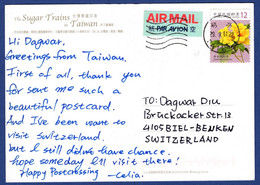 The Sugar Trains in Taiwan
Hi Dagwar,
Greetings from Taiwan.
First of all, thank you
for sent me such a
beautiful postcard.
And I've been want to
visit Switzerland.
but I still didn't have chance.
hope someday I'll visit there!
Happy Postcrossing -Celia.
AIR MAIL
PAR AVION
12
TO: Dagwar Diu
Bruckackerstr.13
4105 BIEL-BENKEN
SWITZERLAND